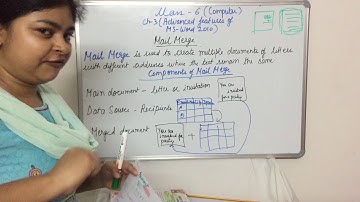 Class - 6 (Computer)
Ch-3 (Advanced features of
MS-Word 2010)
Mail Merge
Mail Merge is used to create multiple documents of letters
with different addresses where the text remain the same
Components of Mail Merge
Main document - letter or invitation
You are
invited
for a party
Data Source - Recipients
Merged document
You are
invited for
party
+